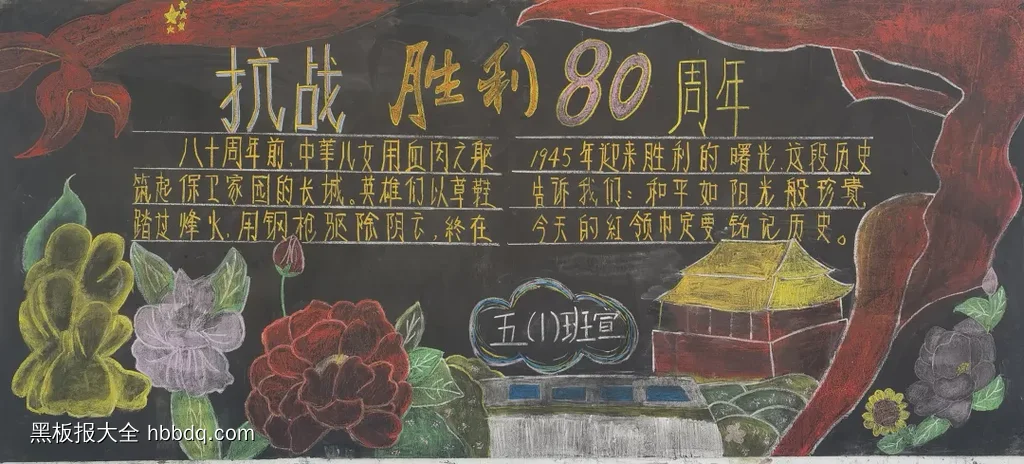 抗战 胜利80周年
八十周年前，中華儿女用血肉之躯
筑起保卫家园的长城。英雄们以草鞋
踏过烽火，用钢枪驱除阴云，终在
1945年迎来胜利的曙光，这段历史
告诉我们：和平如阳光般珍贵，
今天的红领巾定要铭记历史。
五(1)班宣
黑板报大全 hbbdq.com